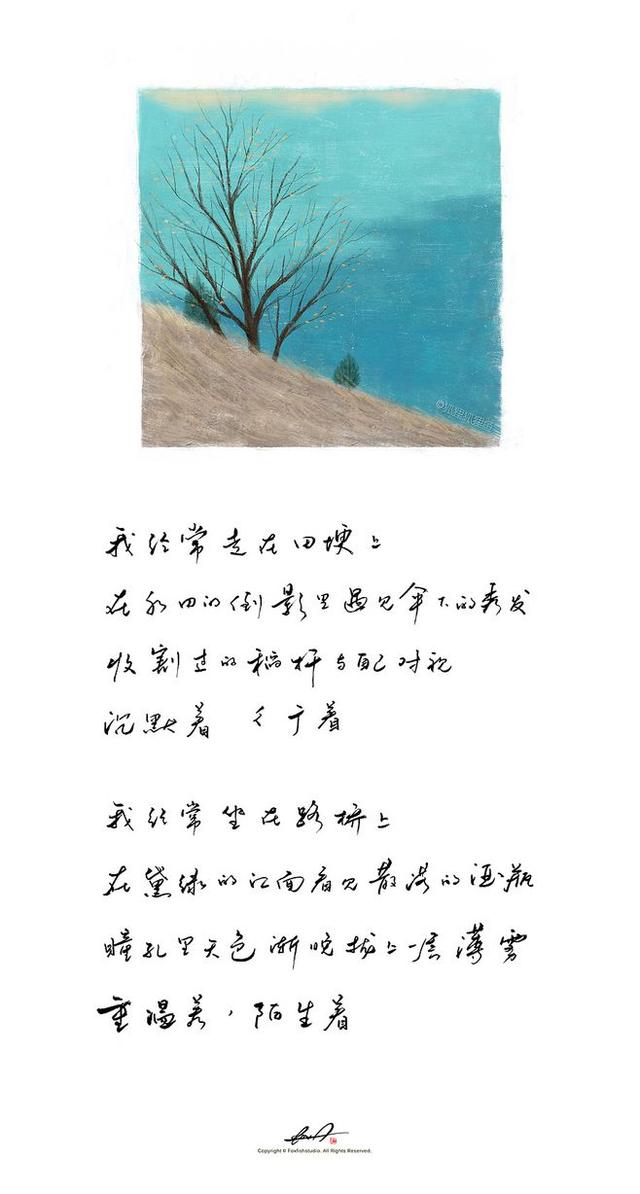 ©狐狸狐狸鱼
我经常走在田埂上
在水田的倒影里遇见伞下的秀发
收割过的稻杆与自己对视
沉默着 彳亍着
我经常坐在路桥上
在黛绿的江面看见散落的酒瓶
瞳孔里天色渐晚拢上一层薄雾
重温着,陌生着
Copyright © Foxfishstudio. All Rights Reserved.